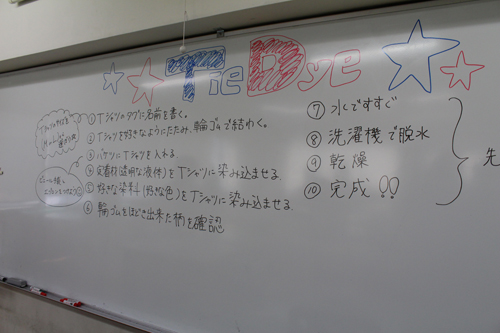 Tie Dye
① Tシャツのタグに名前を書く。
② Tシャツを好きなようにたたみ、輪ゴムで結わく。
③ バケツにTシャツを入れる。
④ 定着材(透明な液体)をTシャツに染み込ませる
⑤ 好きな染料(好きな色)をTシャツに染み込ませる
⑥ 輪ゴムをほどき出来た柄を確認
⑦ 水ですすぐ
⑧ 洗濯機で脱水
⑨ 乾燥
⑩ 完成!!
先